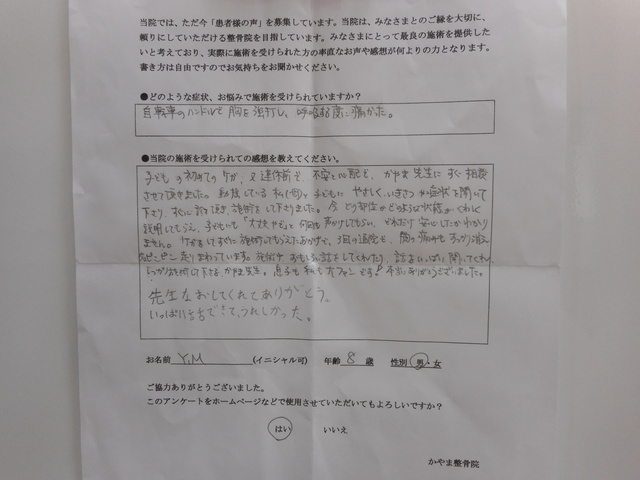 当院では、ただ今「患者様の声」を募集しています。当院は、みなさまとのご縁を大切に、
頼りにしていただける整骨院を目指しています。みなさまにとって最良の施術を提供した
いと考えており、実際に施術を受けられた方の率直なお声や感想が何よりの力となります。
書き方は自由ですのでお気持ちをお聞かせください。
●どのような症状、お悩みで施術を受けられていますか?
自転車のハンドルで胸を強打し、呼吸する度に痛かった。
●当院の施術を受けられての感想を教えてください。
子どもの初めてのケガ、又連休前で、不安と心配で、かやま先生にすぐ相談
させて頂きました。動揺している私(母)と子どもに やさしく、いきさつや症状を聞いて
下さり、すぐに診て頂き、施術をして下さりました。今 どの部位がどのような状態か、くわしく
説明してもらえ、子どもにも「大丈夫やで」と何回も声かけしてもらい、どれだけ安心したかわかり
ません。ケガをしてすぐに施術してもらえたおかげで、3回の通院で、胸の痛みもすっかり消え、
ピンピン走りまわっています。施術中 おもしろい話をしてくれたり、話をいっぱい聞いてくれ、
しっかり施術して下さる かやま先生。息子も私も大ファンです!本当にありがとうございました。
先生なおしてくれてありがとう。
いっぱい話できて、うれしかった。
お名前 Y.M (イニシャル可) 年齢 8 歳 性別 男・女
ご協力ありがとうございました。
このアンケートをホームページなどで使用させていただいてもよろしいですか?
はい いいえ
かやま整骨院